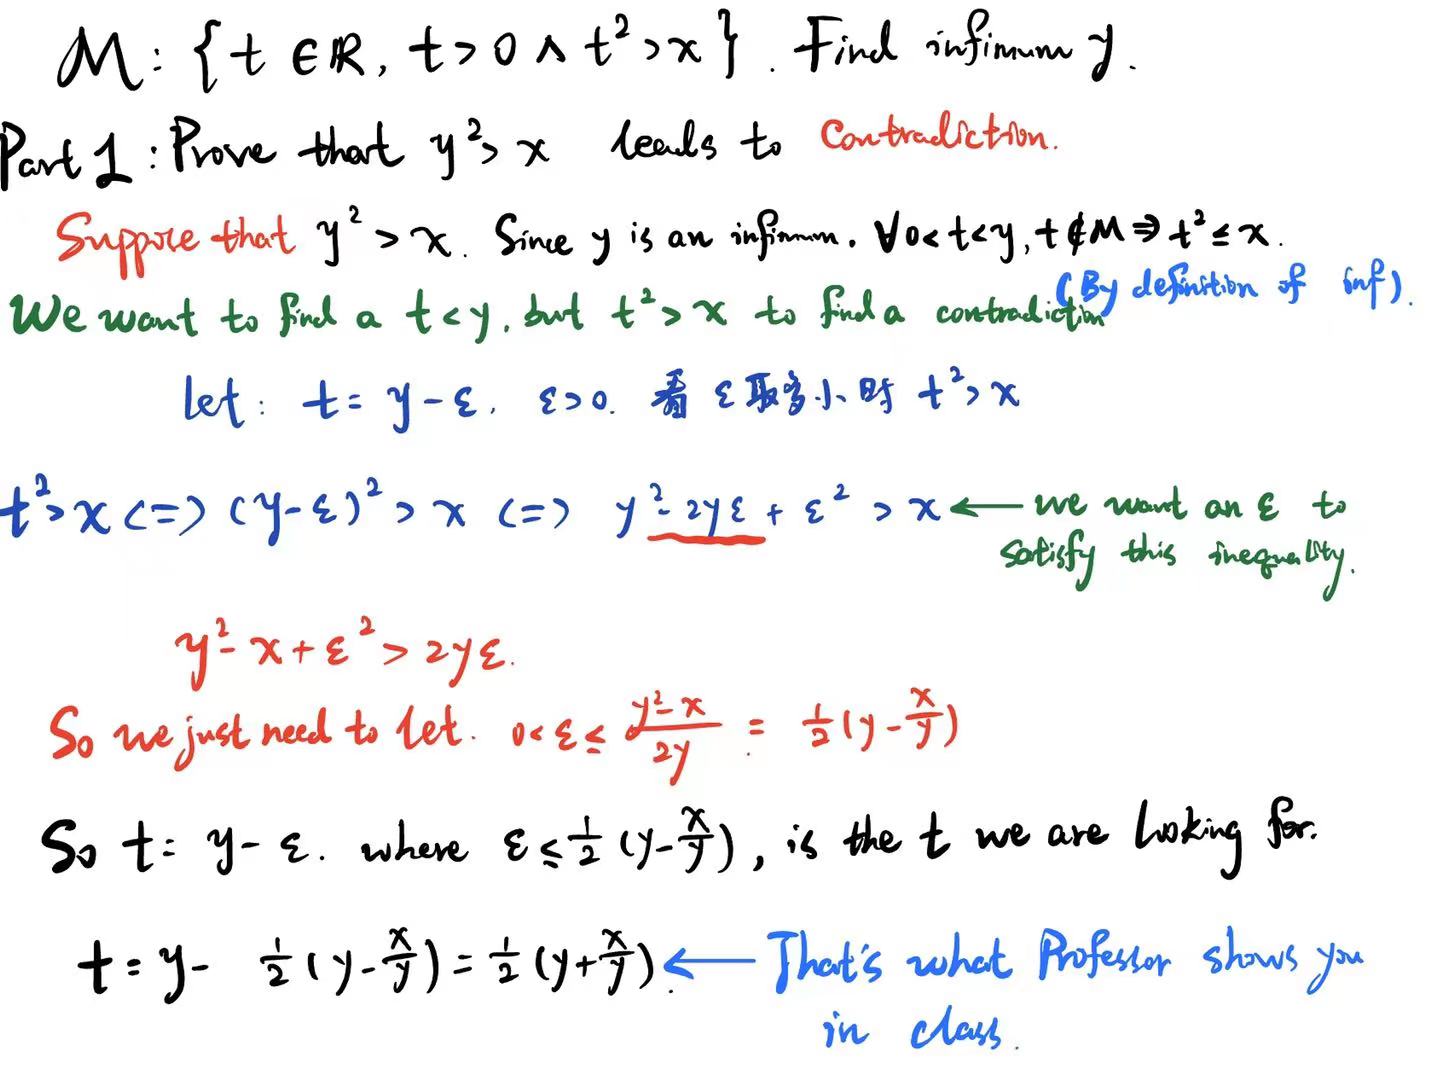 M: {t ∈ ℝ, t > 0 ∧ t² > x}. Find infimum y.
Part 1: Prove that y² > x leads to contradiction.
Suppose that y² > x. Since y is an infimum. ∀ 0 < t < y, t ∉ M ⇒ t² ≤ x.
(By definition of inf).
We want to find a t < y, but t² > x to find a contradiction
let: t = y - ε. ε > 0. 看 ε 取多小时 t² > x
t² > x <=> (y - ε)² > x <=> y² - 2yε + ε² > x ← we want an ε to
satisfy this inequality.
y² - x + ε² > 2yε.
So we just need to let. 0 < ε ≤ (y² - x)/2y = 1/2 (y - x/y)
So t = y - ε. where ε ≤ 1/2 (y - x/y), is the t we are looking for.
t = y - 1/2 (y - x/y) = 1/2 (y + x/y). ← That's what Professor shows you
in class.